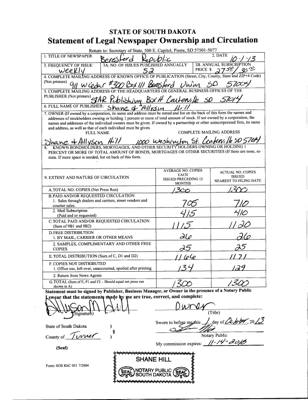 STATE OF SOUTH DAKOTA
Statement of Legal Newspaper Ownership and Circulation
Return to: Secretary of State, 500 E. Capitol, Pierre, SD 57501-5077
1. TITLE OF NEWSPAPER
Beresford Republic
2. DATE
10-1-13
3. FREQUENCY OF ISSUE
Weekly
3A. NO. OF ISSUES PUBLISHED ANNUALLY
52
3B. ANNUAL SUBSCRIPTION PRICE $
4. COMPLETE MAILING ADDRESS OF KNOWN OFFICE OF PUBLICATION (Street, City, County, State and ZIP+4 Code) (Not printers)
Beresford, Union SD 57004
5. COMPLETE MAILING ADDRESS OF THE HEADQUARTERS OF GENERAL BUSINESS OFFICES OF THE PUBLISHER (Not printers)
6. FULL NAME OF PUBLISHER:
Shane & Allyson Hill
7. OWNER (If owned by a corporation, its name and address must be stated and for on the back of this form the names and
addresses of stockholders owning or holding 1 percent or more of total amount of stock. If not owned by a corporation, the
names and addresses of the individual owners must be given. If owned by a partnership or other unincorporated firm, its name
and address, as well as that of each individual must be given.
FULL NAME
COMPLETE MAILING ADDRESS
Shane & Allyson Hill
1000 Washington St
8. KNOWN BONDHOLDERS, MORTGAGES, AND OTHER SECURITY HOLDERS OWNING OR HOLDING 1
PERCENT OR MORE OF TOTAL AMOUNT OF BONDS, MORTGAGES OR OTHER SECURITIES (If there are none, so
state. If more space is needed, list on back of this form.
9. EXTENT AND NATURE OF CIRCULATION
AVERAGE NO. COPIES EACH ISSUES PRECEDING 12 MONTHS
ACTUAL NO. COPIES ISSUED NEAREST TO FILING DATE
A. TOTAL NO. COPIES (Net Press Run)
1300
1300
B. PAID AND/OR REQUESTED CIRCULATION
1. Sales through dealers and carriers, street vendors and counter sales.
705
710
2. Mail Subscription
(Paid and or requested)
415
410
C. TOTAL PAID AND/OR REQUESTED CIRCULATION
(Sum of 9B1 and 9B2)
1115
1120
D. FREE DISTRIBUTION
1. BY MAIL, CARRIER OR OTHER MEANS
26
26
2. SAMPLES, COMPLIMENTARY AND OTHER FREE COPIES
25
25
E. TOTAL DISTRIBUTION (Sum of C, D1 and D2)
1166
1171
F. COPIES NOT DISTRIBUTED
1. Office use, left over, unaccounted, spoiled after printing
134
129
2. Return from News Agents
G. TOTAL (Sum of E, F1 and F2 - Should equal net press run shown in A)
1300
1300
Statement must be signed by Publisher, Business Manager, or Owner in the presence of a Notary Public
I swear that the statements made by me are true, correct, and complete:
Allyson Hill
(Signature)
Owner
(Title)
State of South Dakota )
County of Turner )
Sworn to before me this 1 day of October
Notary Public
My commission expires:
(Seal)
Form: SOS REC 051 7/2004
SHANE HILL
NOTARY PUBLIC
SOUTH DAKOTA
SEAL